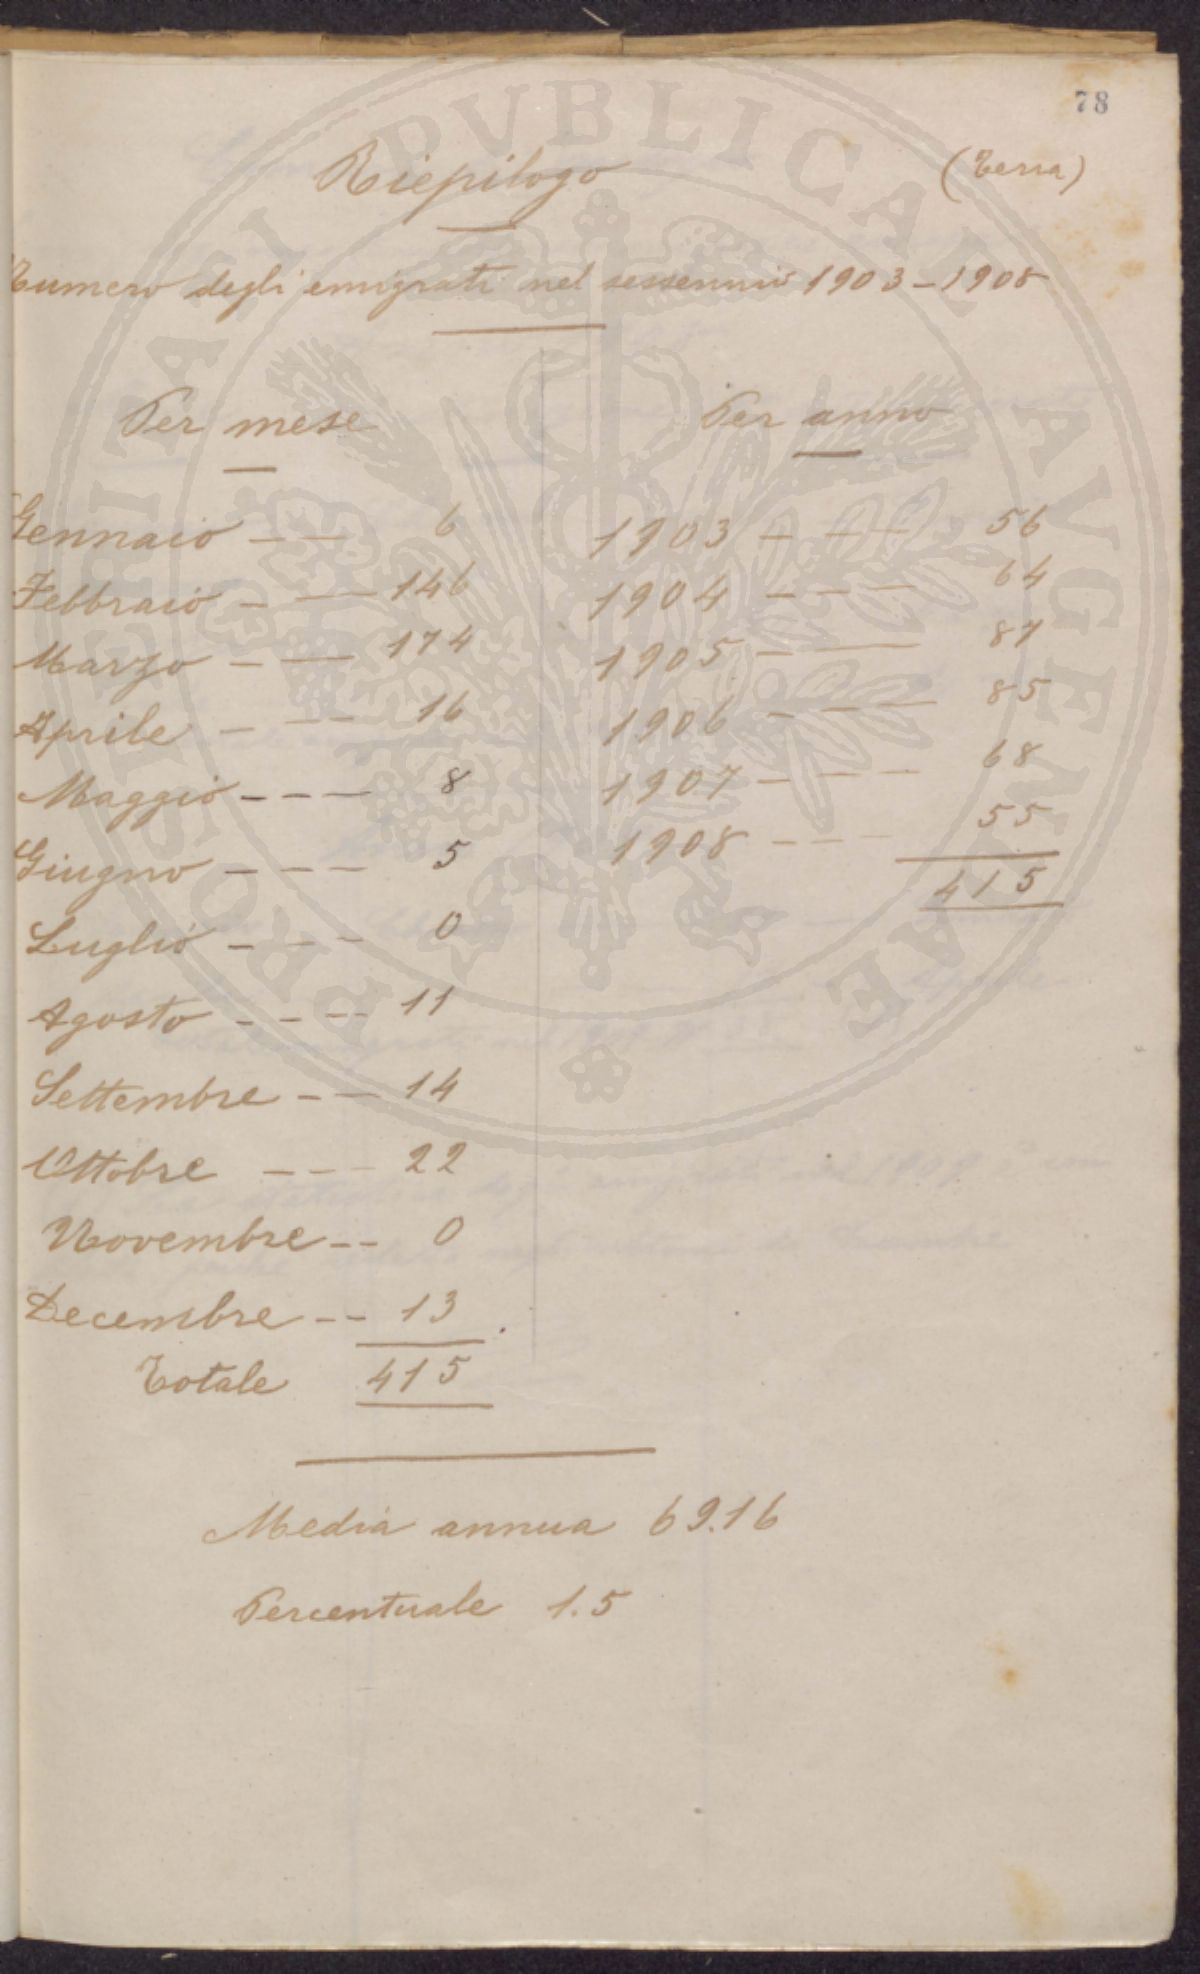 78
Riepilogo
(Terra)
Numero degli emigrati nel sessennio 1903-1908
Per mese
Gennaio - - 6
Febbraio - - - 146
Marzo - - - 174
Aprile - - - 16
Maggio - - - - 8
Giugno - - - - 5
Luglio - - - - 0
Agosto - - - - 11
Settembre - - - 14
Ottobre - - - 22
Novembre - - 0
Decembre - - 13
Totale 415
Per anno
1903 - - - 56
1904 - - - - 64
1905 - - - 87
1906 - - - - 85
1907 - - - - 68
1908 - - - 55
415
Media annua 69.16
Percentuale 1.5
PROSPERITASI PVBLICAE AVGENDAE